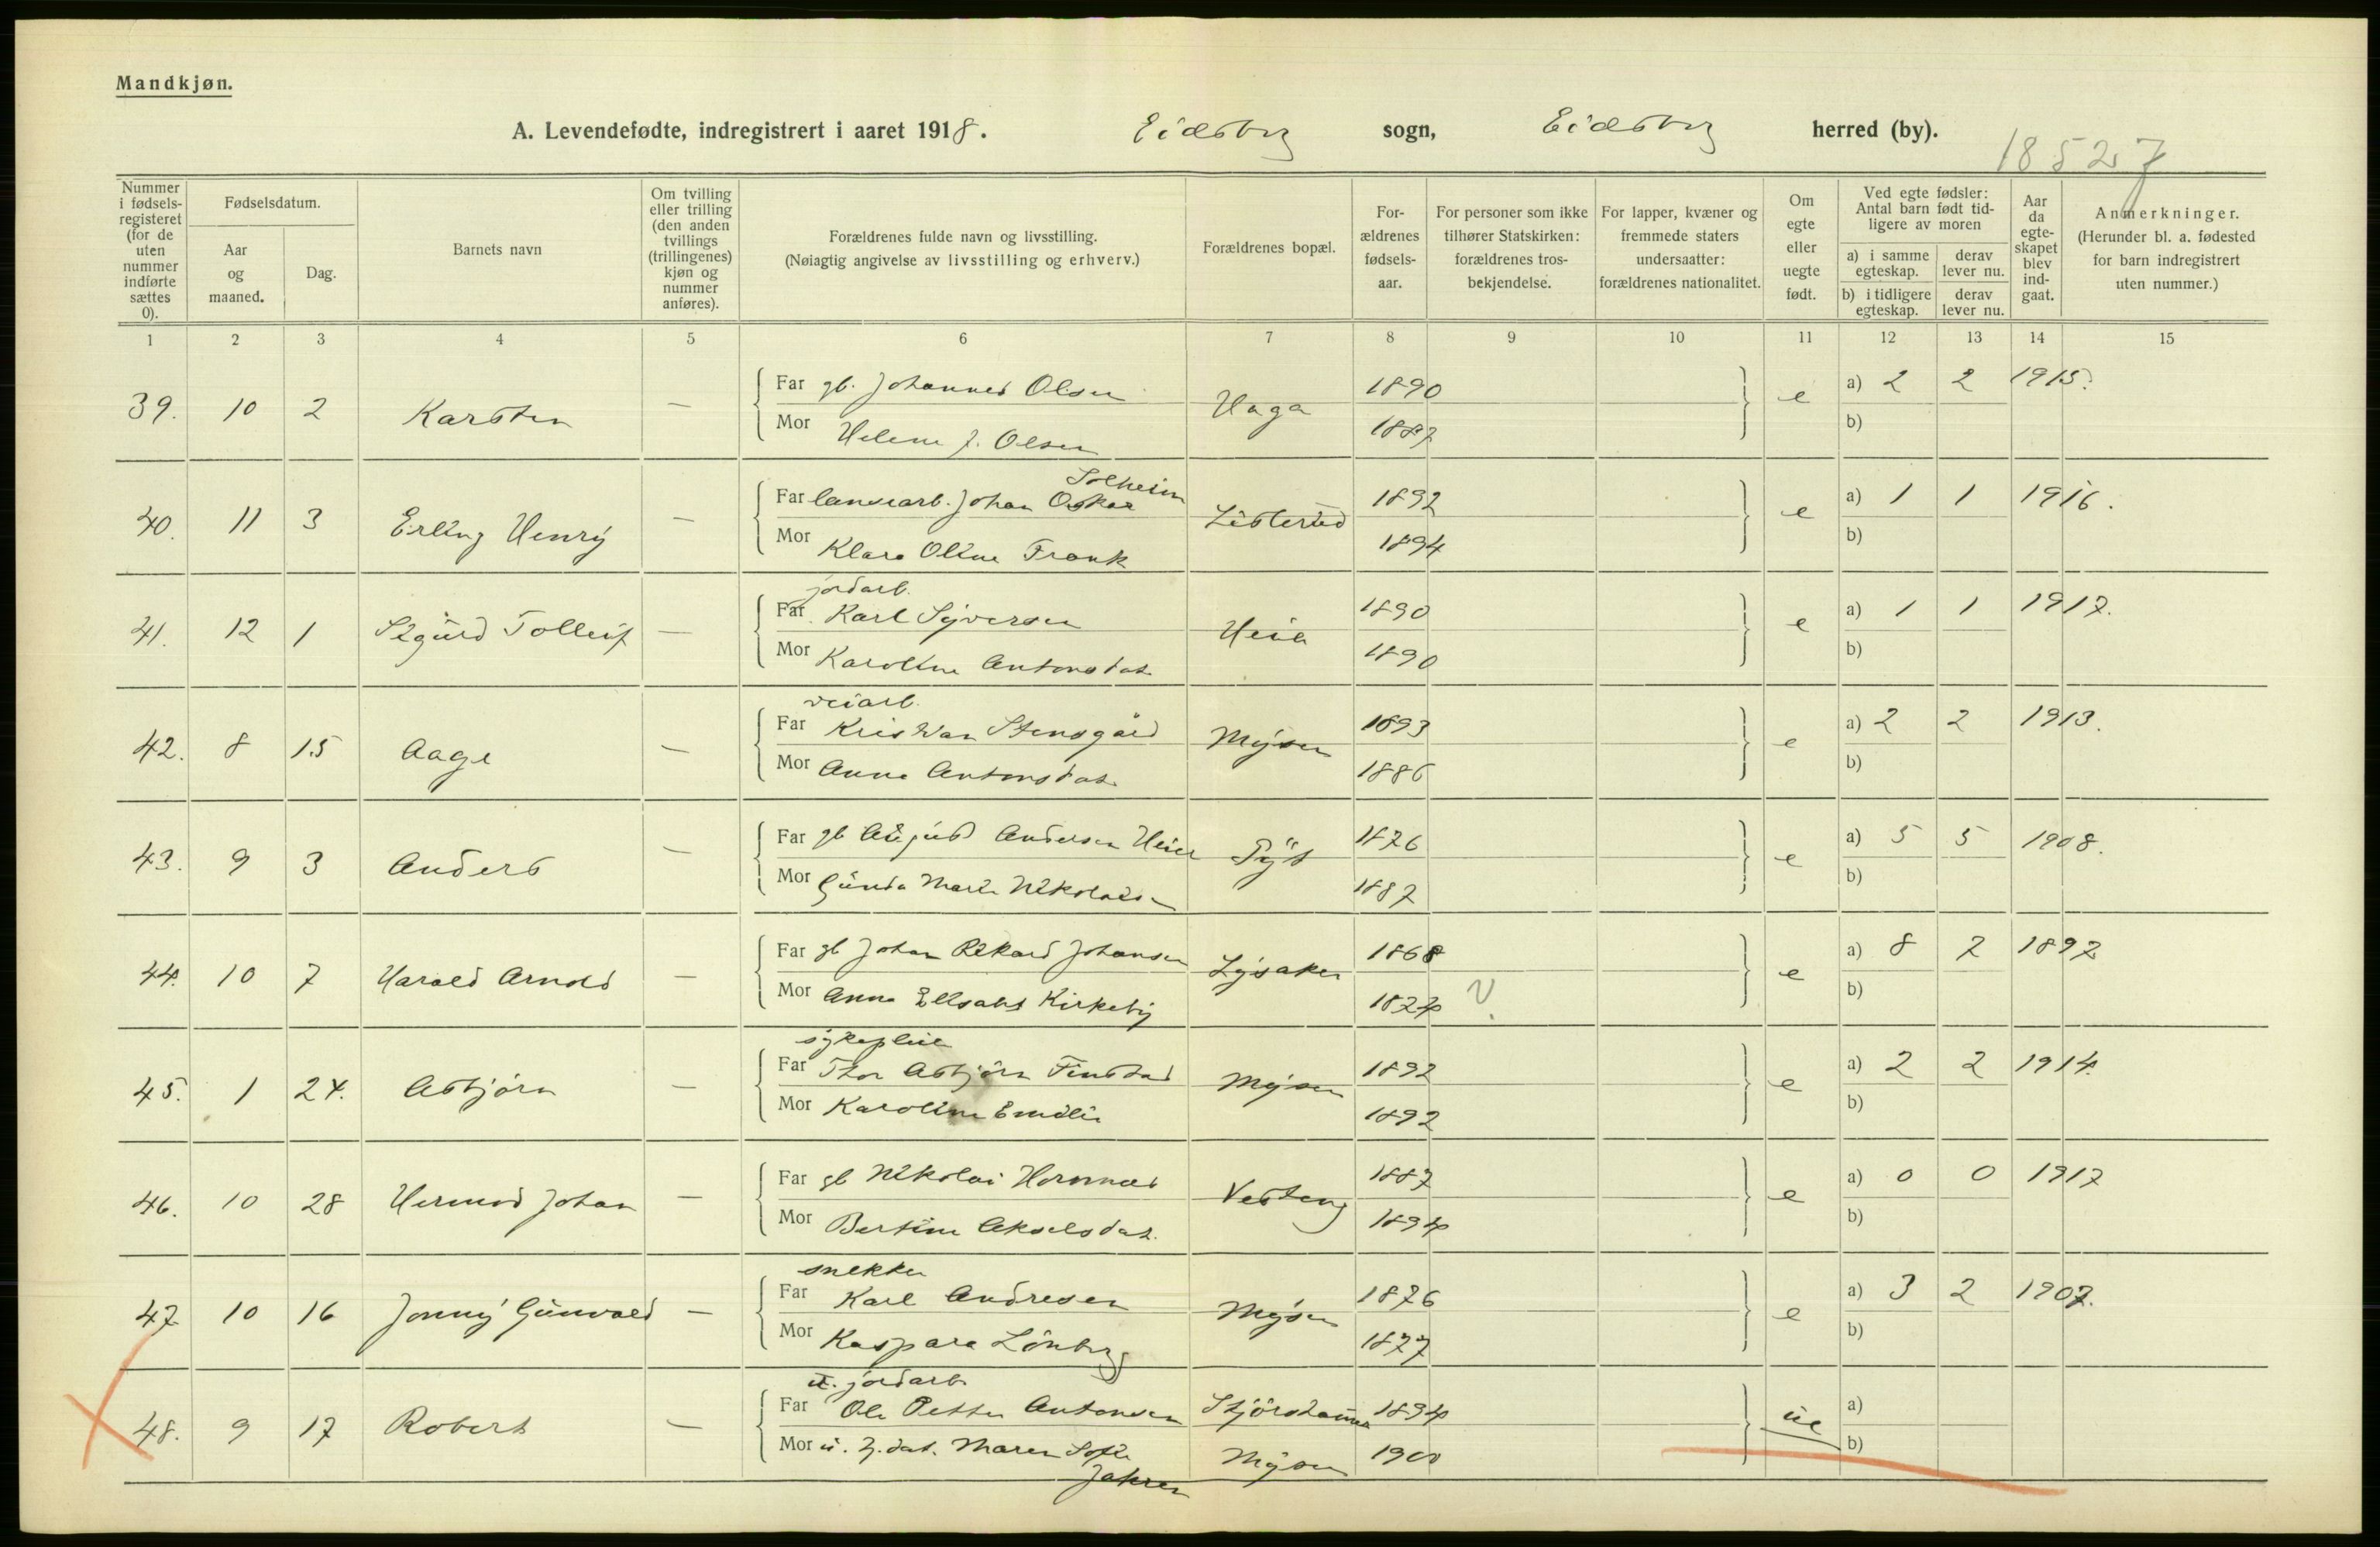 Mandkjøn.
A. Levendefødte, indregistrert i aaret 1918. Eidsberg sogn, Eidsberg herred (by).
18527
Nummer i fødselsregisteret (for de uten nummer indførte sættes 0).
Fødselsdatum.
Aar og maaned.
Dag.
Barnets navn
Om tvilling eller trilling (den anden tvillings (trillingenes) kjøn og nummer anføres).
Forældrenes fulde navn og livsstilling.
(Nøiagtig angivelse av livsstilling og erhverv.)
Forældrenes bopæl.
Forældrenes fødselsaar.
For personer som ikke tilhører Statskirken: forældrenes trosbekjendelse.
For lapper, kvæner og fremmede staters undersaatter: forældrenes nationalitet.
Om egte eller uegte født.
Ved egte fødsler: Antal barn født tidligere av moren
a) i samme egteskap.
derav lever nu.
b) i tidligere egteskap.
derav lever nu.
Aar da egteskapet blev indgaat.
Anmerkninger.
(Herunder bl. a. fødested for barn indregistrert uten nummer.)
1 2 3 4 5 6 7 8 9 10 11 12 13 14 15
39. 10 2 Karsten — Far gb. Johannes Olsen Haga 1890 e a) 2 2 1915.
Mor Helene J. Olsen 1887 b)
Solheim
40. 11 3 Erling Henry — Far landearb. Johan Oskar Listerud 1892 e a) 1 1 1916.
Mor Klara Oline Frank 1894 b)
jordarb.
41. 12 1 Sigurd Tolleif — Far Karl Syversen Heia 1890 e a) 1 1 1917.
Mor Karoline Antonsdat. 1890 b)
veiarb.
42. 8 15 Aage — Far Kristian Stensgård Mysen 1893 e a) 2 2 1913.
Mor Anna Antonsdat. 1886 b)
43. 9 3 Anders — Far gb August Andersen Heier 1876 e a) 5 5 1908.
Mor Gunda Marie Nikolais 1887 b)
44. 10 7 Harald Arnold — Far gb Johan Rikard Johansen Lysaker 1868 e a) 8 7 1897
Mor Anna Elisabet Kirkeby 1874 b)
sykepleie
45. 1 24. Asbjörn — Far Thor Asbjörn Finstad Mysen 1892 e a) 2 2 1914.
Mor Karoline Emilie 1892 b)
46. 10 28 Hermod Johan — Far gb Nikolai Hornnæs Vesteng 1887 e a) 0 0 1917
Mor Bertine Akselsdat. 1894 b)
snekker
47 10 16 Jonny Gunvald — Far Karl Andresen Mysen 1876 e a) 3 2 1907.
Mor Kaspara Lönberg 1877 b)
u. jordarb.
48. 9 17 Robert — Far Ole Petter Antonsen 1894 ue a)
Mor u. tj. dat. Maren Sofie Mysen 1900 b)
Jahren